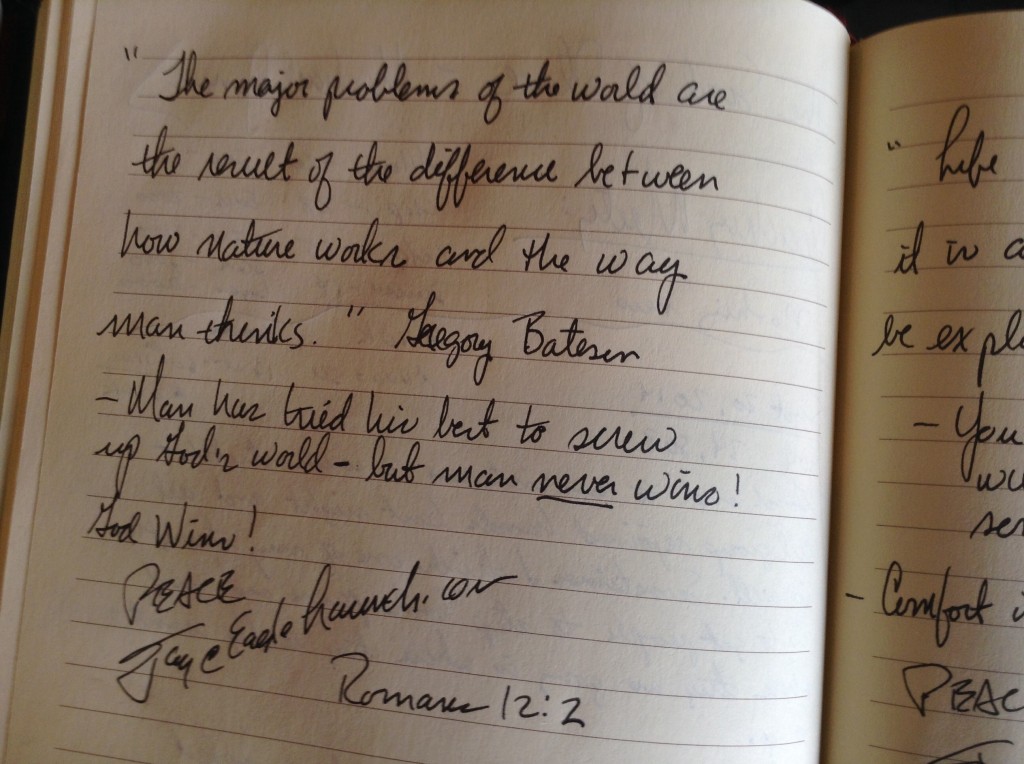 " The major problems of the world are
the result of the difference between
how nature works and the way
man thinks. " Gregory Bateson
- Man has tried his best to screw
up God's world - but man never wins!
God Wins!
PEACE
Jay c Eagle
Romans 12:2
" Life
it is a
be expl
- You
wi
ser
- Comfort i
PEAC